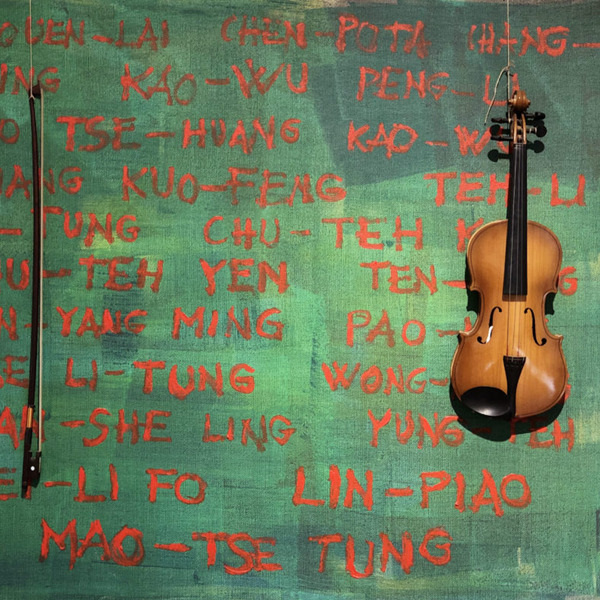 OUEN-LAI CHEN-POTA CHANG-
UNG KAO-WU PENG-L
O TSE-HUANG KAO-W
ANG KUO-FENG TEH-LI
-TUNG CHU-TEH K
OU-TEH YEN TEN- G
N-YANG MING PAO-
LI-TUNG WONG-
AH-SHE LING YUNG-TEH
-LI FO LIN-PIAO
MAO-TSE TUNG